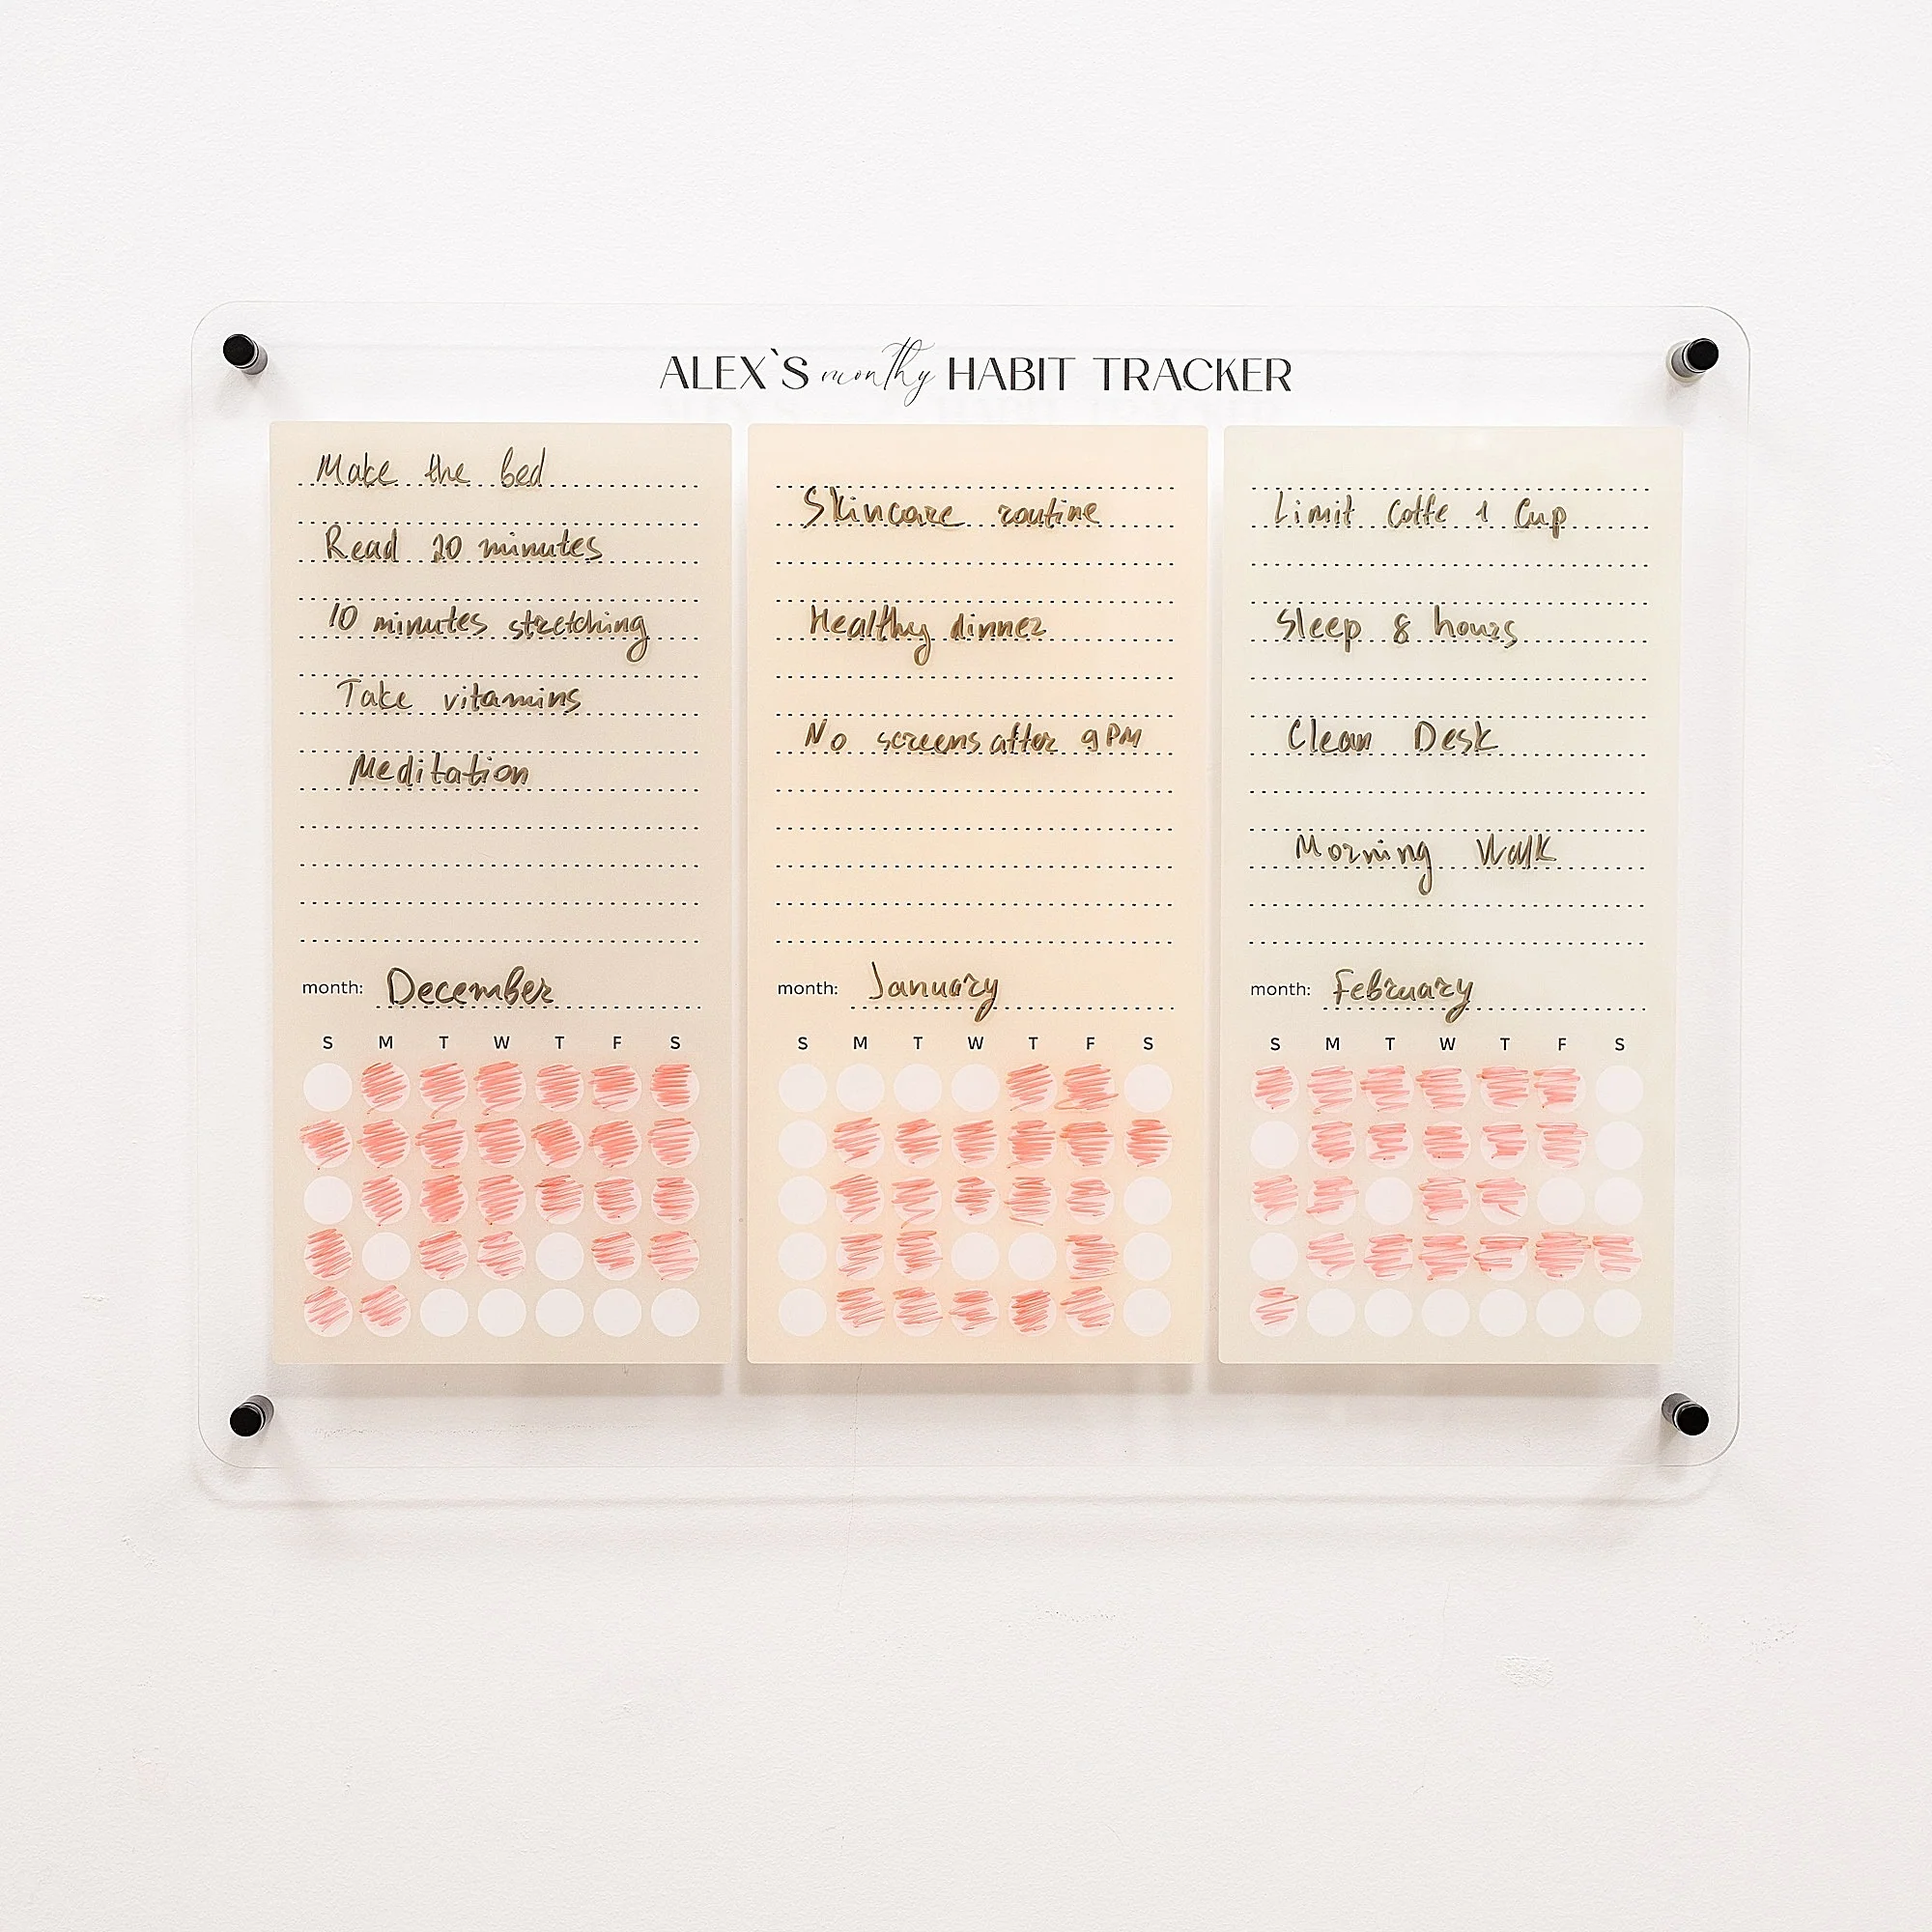 ALEX`S monthy HABIT TRACKER
Make the bed
Read 20 minutes
10 minutes stretching
Take vitamins
Meditation
month: December
S M T W T F S
Skincare routine
Healthy dinner
No screens after 9 PM
month: January
S M T W T F S
Limit Coffe 1 Cup
Sleep 8 hours
Clean Desk
Morning Walk
month: February
S M T W T F S